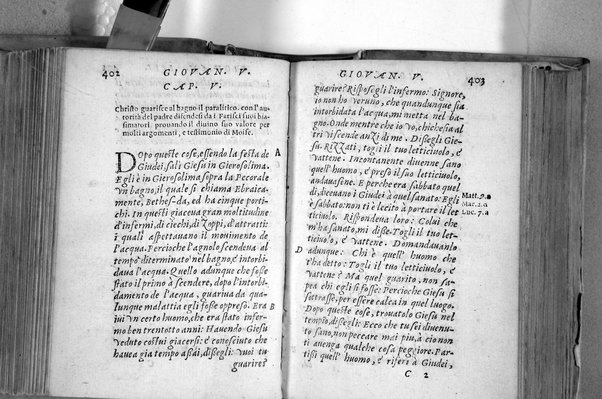 402
GIOVAN. V.
CAP. V.
Christo guarisce al bagno il paralitico. con l'au
torità del padre difendesi da i Farisei suoi bia-
simatori. prouando il diuino suo valore per
molti argomenti, e testimonio di Moise.
DOpo queste cose, essendo la festa de A
Giudei. salì Giesu in Gierosolima.
Egli è in Gierosolima sopra la Pecorale
vn bagno, il quale si chiama Ebraica-
mente, Bethes-da, ed ha cinque porti-
chi. In questi giaceua gran moltitudine
d'infermi, di ciechi, di Zoppi, d'attratti:
i quali aspettauano il mouimento de
l'acqua. Percioche l'agnolo scendeua al
tempo diterminato nel bagno, e intorbi-
daua l'acqua. Quello adunque che fosse
stato il primo à scendere, dopo l'intorbi-
damento de l'acqua, guariua da qua-
lunque malattia egli fosse oppreso. Era B
iui vn certo huomo, che era stato infer-
mo ben trentotto anni: Hauendo Giesu
veduto costui giacersi: e conosciuto che
hauea gia tempo assai, dissegli: Vuoi tu
guarire?
GIOVAN. V.
403
guarire? Risposegli l'infermo: Signore,
io non ho veruno, che quandunque sia
intorbidata l'acqua, mi metta nel ba-
gno. Onde mentre che io vo, chiche sia al
tri vi scende anzi di me. Dissegli Gie-
su. Rizzati, togli il tuo letticiuolo, e
vattene. Incontanente diuenne sano
quell' huomo, e preso il suo letticiuolo,
andauasene. E perche era sabbato quel
dì, diceuano i Giudei à quel sanato: Egli Matt.9.a
è sabbato: non ti è lecito à portare il let Mar.2.a
ticiuolo. Rispondeua loro: Colui che Luc.5.a
m'ha sanato, mi disse. Togli il tuo let-
ticiuolo, e vattene. Domandauanlo
D adunque: Chi è quell' huomo che
t'ha detto: Togli il tuo letticiuolo, e
vattene? Ma quel guarito, non sa-
pea chi egli si fosse: Percioche Giesu si
sottrasse, per essere calca in quel luogo.
Dopo queste cose, trouatolo Giesu nel
tempio, dissegli: Ecco che tu sei diuenu-
to sano, non peccare mai piu, à cio non
ti auenga qualche cosa peggiore. Par-
tissi quell' huomo, e riferì à Giudei,
C 2